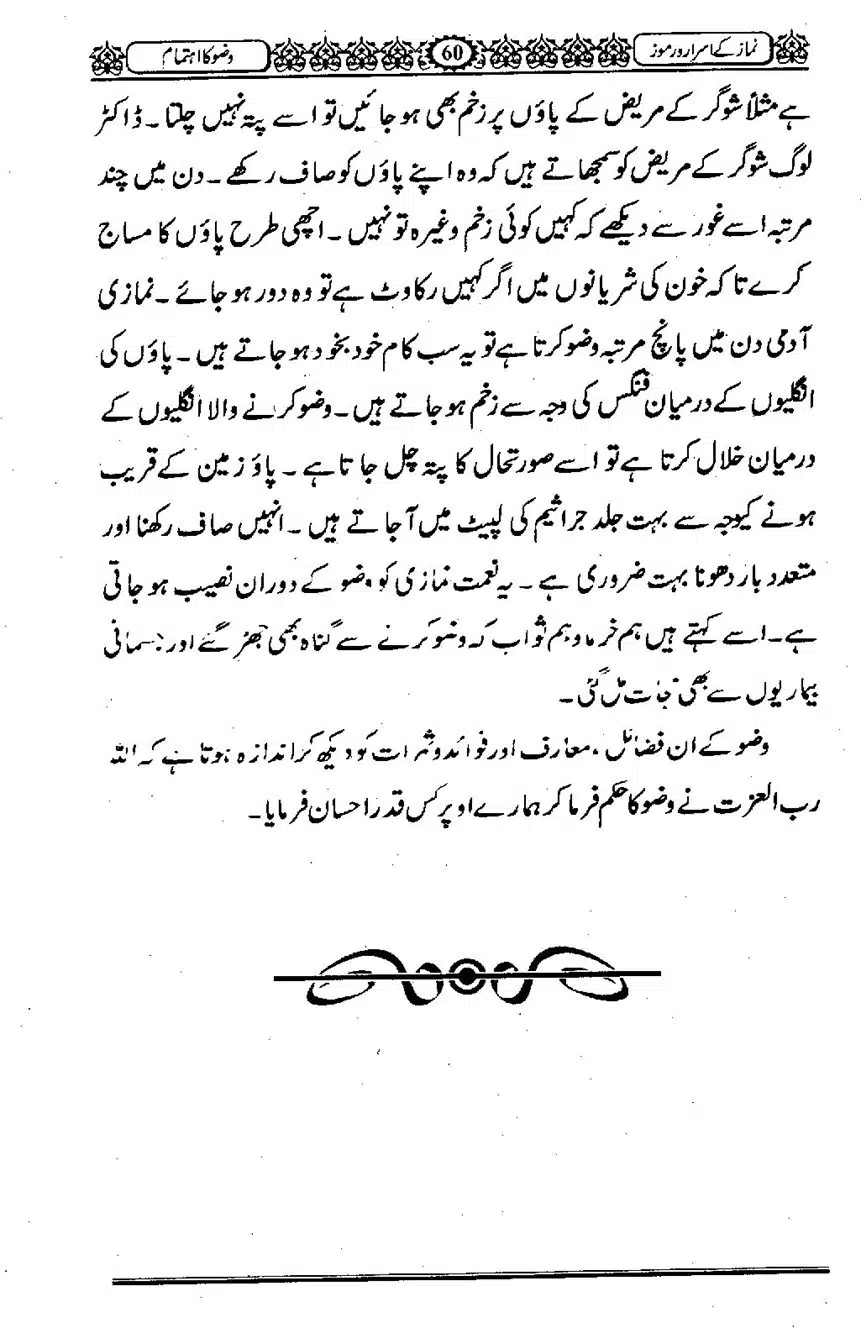 نماز کے اسرار و رموز
60
وضو کا اہتمام
ہے مثلاً شوگر کے مریض کے پاؤں پر زخم بھی ہو جائیں تو اسے پتہ نہیں چلتا ۔ ڈاکٹر
لوگ شوگر کے مریض کو سمجھاتے ہیں کہ وہ اپنے پاؤں کو صاف رکھے ۔ دن میں چند
مرتبہ اسے غور سے دیکھے کہ کہیں کوئی زخم وغیرہ تو نہیں ۔ اچھی طرح پاؤں کا مساج
کرے تا کہ خون کی شریانوں میں اگر کہیں رکاوٹ ہے تو وہ دور ہو جائے ۔ نمازی
آدمی دن میں پانچ مرتبہ وضو کرتا ہے تو یہ سب کام خود بخود ہو جاتے ہیں ۔ پاؤں کی
انگلیوں کے درمیان فنگس کی وجہ سے زخم ہو جاتے ہیں ۔ وضو کرنے والا انگلیوں کے
درمیان خلال کرتا ہے تو اسے صورتحال کا پتہ چل جاتا ہے ۔ پاؤ زمین کے قریب
ہونے کیوجہ سے بہت جلد جراثیم کی لپیٹ میں آ جاتے ہیں ۔ انہیں صاف رکھنا اور
متعدد بار دھونا بہت ضروری ہے ۔ یہ نعمت نمازی کو وضو کے دوران نصیب ہو جاتی
ہے ۔ اسے کہتے ہیں ہم خرما وہم ثواب کہ وضو کرنے سے گناہ بھی جھڑ گئے اور جسمانی
بیماریوں سے بھی نجات مل گئی ۔
وضو کے ان فضائل ، معارف اور فوائد و ثمرات کو دیکھ کر اندازہ ہوتا ہے کہ اللہ
رب العزت نے وضو کا حکم فرما کر ہمارے اوپر کس قدر احسان فرمایا ۔